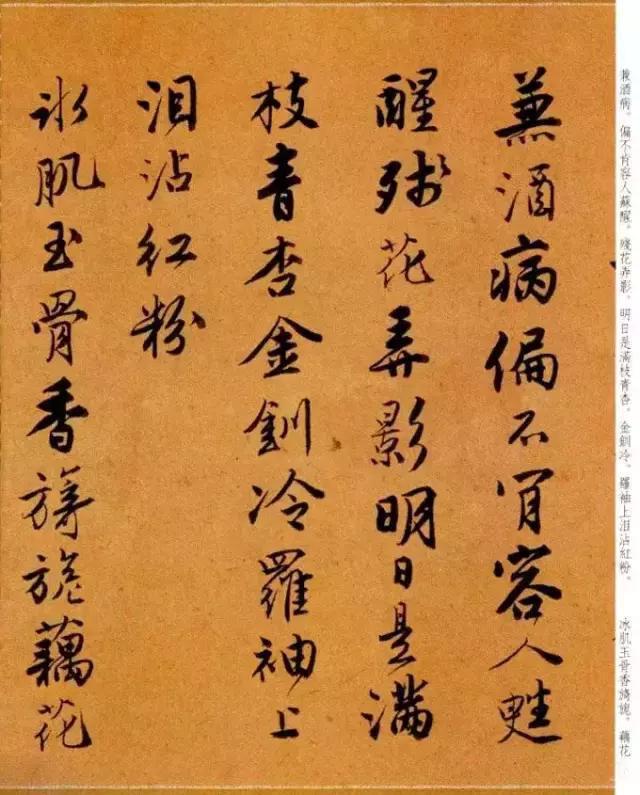 兼酒病。偏不肯容人蘇醒。殘花弄影。明日是滿枝青杏。金釧冷。羅袖上泪沾紅粉。　冰肌玉骨香旖旎。藕花
兼酒病偏不肎容人甦
醒殘花弄影明日是滿
枝青杏金釧冷羅袖上
泪沾紅粉
冰肌玉骨香旖旎藕花